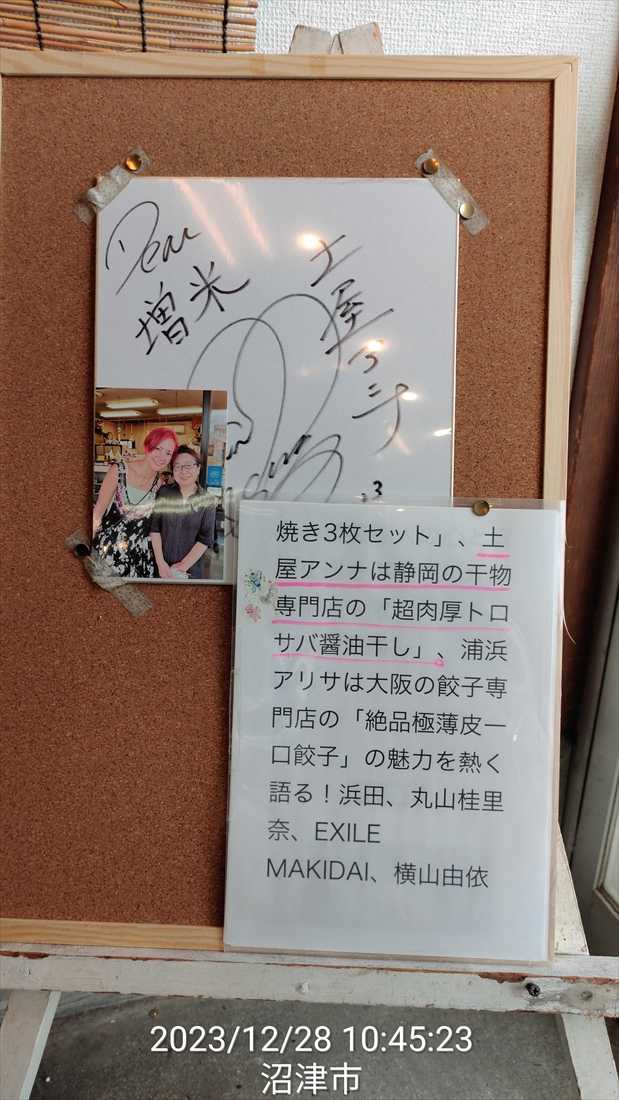 Dear
増米
土屋アンナ
焼き3枚セット」、土
屋アンナは静岡の干物
専門店の「超肉厚トロ
サバ醤油干し」、浦浜
アリサは大阪の餃子専
門店の「絶品極薄皮一
口餃子」の魅力を熱く
語る！浜田、丸山桂里
奈、EXILE
MAKIDAI、横山由依
2023/12/28 10:45:23
沼津市